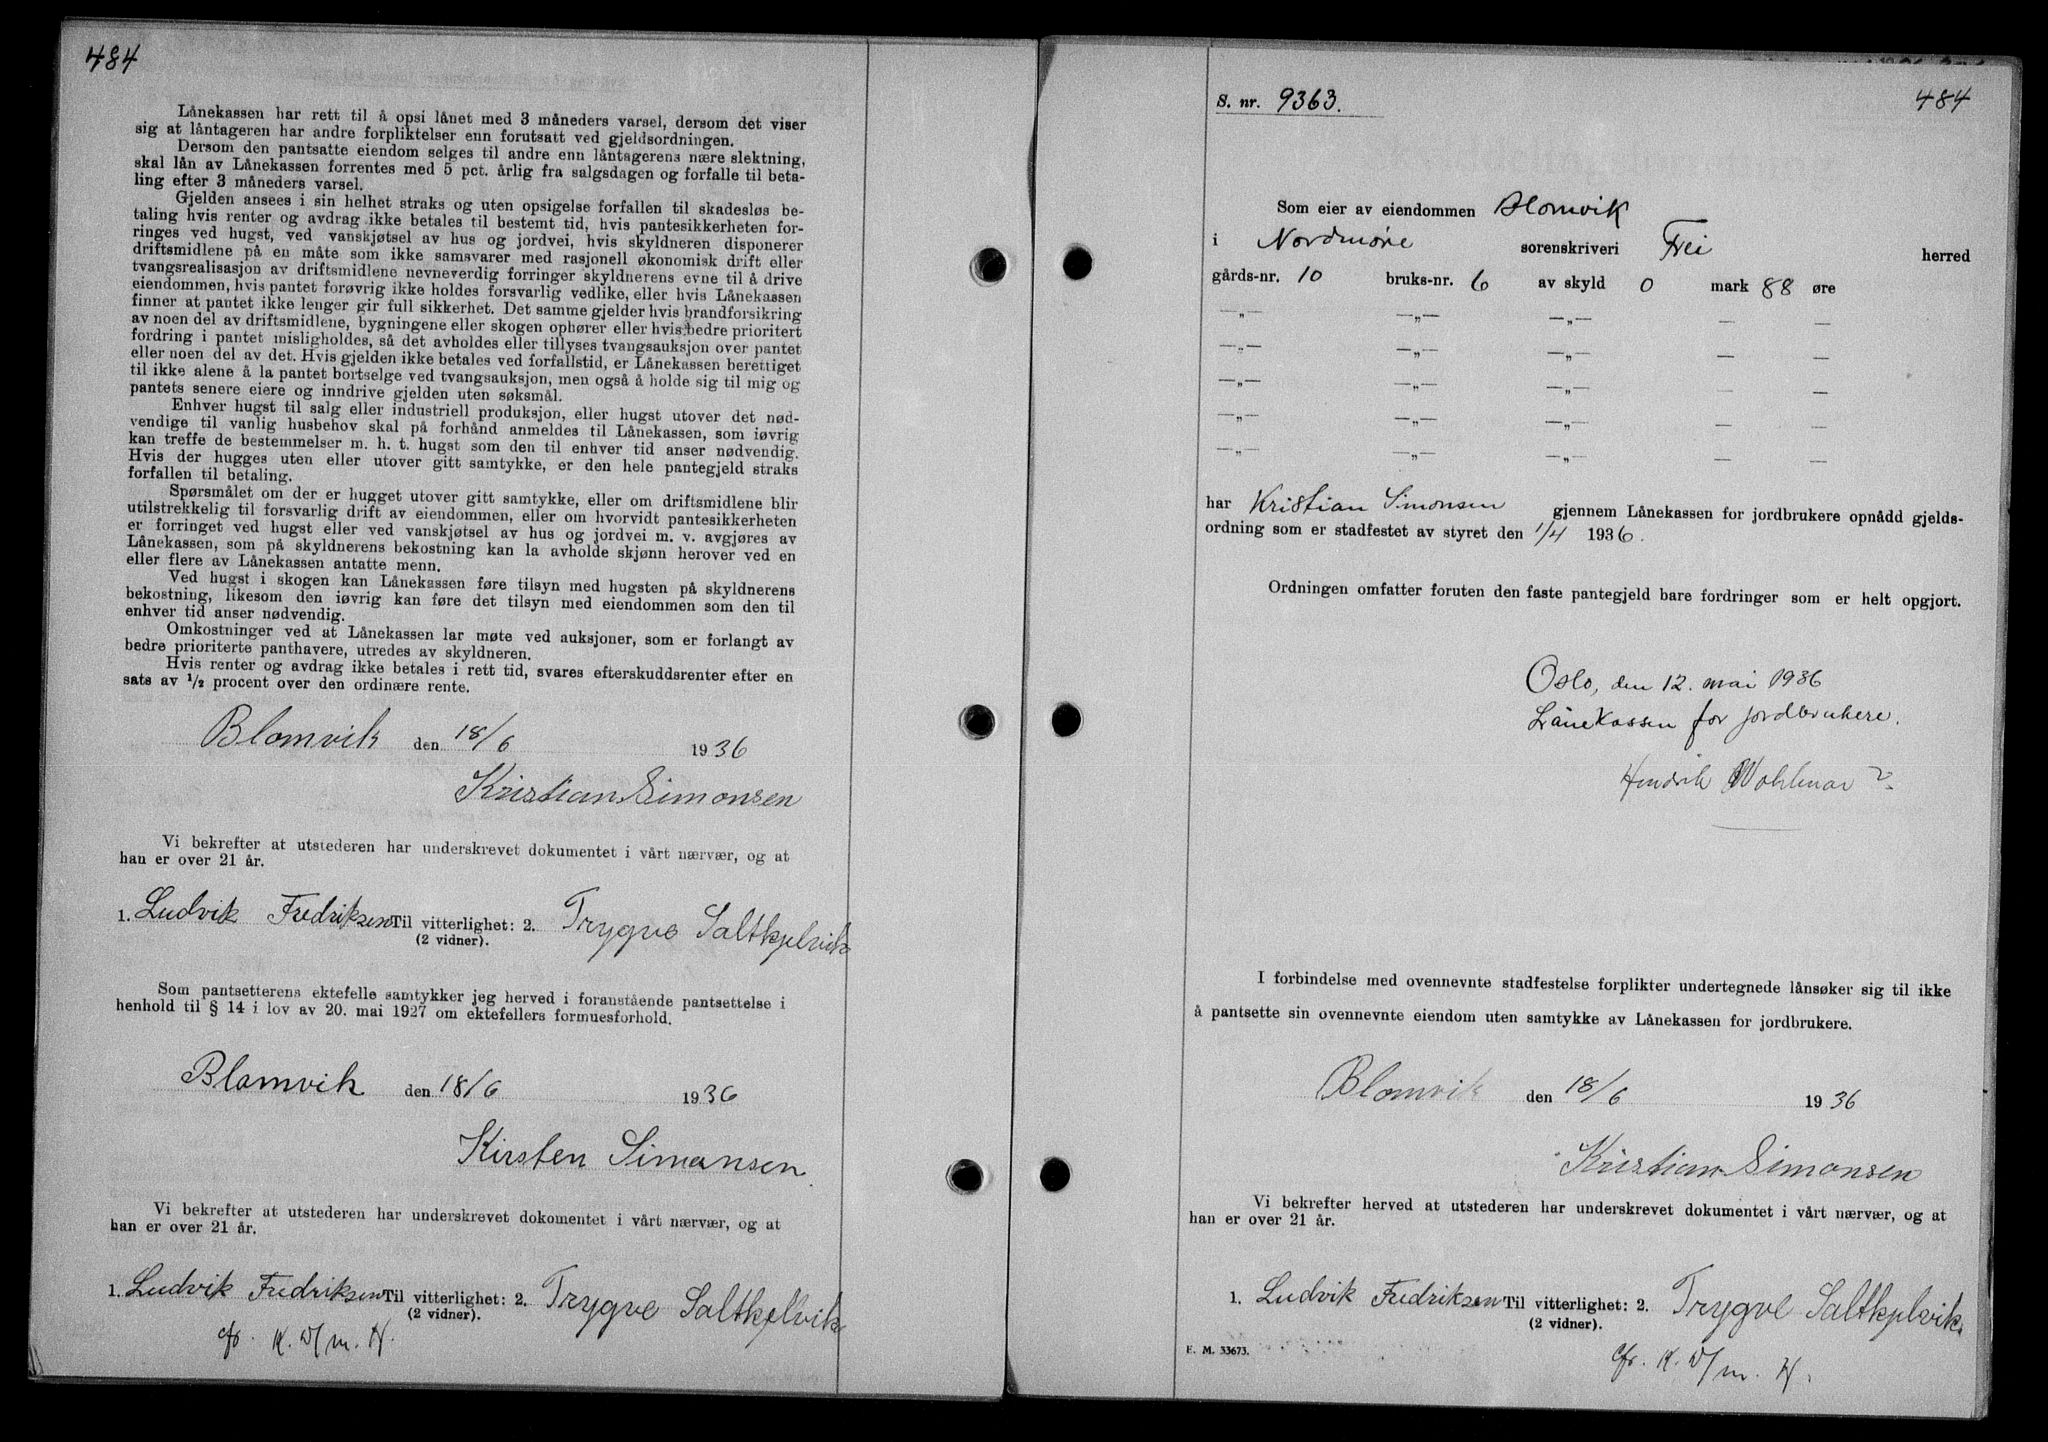 484
Lånekassen har rett til å opsi lånet med 3 måneders varsel, dersom det viser
sig at låntageren har andre forpliktelser enn forutsatt ved gjeldsordningen.
Dersom den pantsatte eiendom selges til andre enn låntagerens nære slektning,
skal lån av Lånekassen forrentes med 5 pct. årlig fra salgsdagen og forfalle til beta-
ling efter 3 måneders varsel.
Gjelden ansees i sin helhet straks og uten opsigelse forfallen til skadesløs be-
taling hvis renter og avdrag ikke betales til bestemt tid, hvis pantesikkerheten for-
ringes ved hugst, ved vanskjøtsel av hus og jordvei, hvis skyldneren disponerer
driftsmidlene på en måte som ikke samsvarer med rasjonell økonomisk drift eller
tvangsrealisasjon av driftsmidlene nevneverdig forringer skyldnerens evne til å drive
eiendommen, hvis pantet forøvrig ikke holdes forsvarlig vedlike, eller hvis Lånekassen
finner at pantet ikke lenger gir full sikkerhet. Det samme gjelder hvis brandforsikring
av noen del av driftsmidlene, bygningene eller skogen ophører eller hvis bedre prioritert
fordring i pantet misligholdes, så det avholdes eller tillyses tvangsauksjon over pantet
eller noen del av det. Hvis gjelden ikke betales ved forfallstid, er Lånekassen berettiget
til ikke alene å la pantet bortselge ved tvangsauksjon, men også å holde sig til mig og
pantets senere eiere og inndrive gjelden uten søksmål.
Enhver hugst til salg eller industriell produksjon, eller hugst utover det nød-
vendige til vanlig husbehov skal på forhånd anmeldes til Lånekassen, som iøvrig
kan treffe de bestemmelser m. h. t. hugst som den til enhver tid anser nødvendig.
Hvis der hugges uten eller utover gitt samtykke, er den hele pantegjeld straks
forfallen til betaling.
Spørsmålet om der er hugget utover gitt samtykke, eller om driftsmidlene blir
utilstrekkelig til forsvarlig drift av eiendommen, eller om hvorvidt pantesikkerheten
er forringet ved hugst eller ved vanskjøtsel av hus og jordvei m. v. avgjøres av
Lånekassen, som på skyldnerens bekostning kan la avholde skjønn herover ved en
eller flere av Lånekassen antatte menn.
Ved hugst i skogen kan Lånekassen føre tilsyn med hugsten på skyldnerens
bekostning, likesom den iøvrig kan føre det tilsyn med eiendommen som den til
enhver tid anser nødvendig.
Omkostninger ved at Lånekassen lar møte ved auksjoner, som er forlangt av
bedre prioriterte panthavere, utredes av skyldneren.
Hvis renter og avdrag ikke betales i rett tid, svares efterskuddsrenter efter en
sats av 1/2 procent over den ordinære rente.
Blomvik den 18/6 1936
Kristian Simonsen
Vi bekrefter at utstederen har underskrevet dokumentet i vårt nærvær, og at
han er over 21 år.
1. Ludvik Fredriksen Til vitterlighet: 2. Trygve Saltkjelvik
(2 vidner).
Som pantsetterens ektefelle samtykker jeg herved i foranstående pantsettelse i
henhold til § 14 i lov av 20. mai 1927 om ektefellers formuesforhold.
Blomvik den 18/6 1936
Kirsten Simonsen.
Vi bekrefter at utstederen har underskrevet dokomentet i vårt nærvær, og at
han er over 21 år.
1. Ludvik Fredriksen Til vitterlighet: 2. Trygve Saltkjelvik
(2 vidner).
cfr. K. D/m. H.
S. nr. 9363.
484
Som eier av eiendommen Blomvik
i Nordmøre sorenskriveri Frei herred
gårds-nr. 10 bruks-nr. 6 av skyld 0 mark 88 øre
—„— —„— —„— — —
—„— —„— —„— — —
—„— —„— —„— — —
—„— —„— —„— — —
—„— —„— —„— — —
har Kristian Simonsen gjennem Lånekassen for jordbrukere opnådd gjelds-
ordning som er stadfestet av styret den 1/4 1936.
Ordningen omfatter foruten den faste pantegjeld bare fordringer som er helt opgjort.
Oslo, den 12. mai 1936
Lånekassen for jordbrukere.
Hendrik
I forbindelse med ovennevnte stadfestelse forplikter undertegnede lånsøker sig til ikke
å pantsette sin ovennevnte eiendom uten samtykke av Lånekassen for jordbrukere.
Blomvik den 18/6 1936
Kristian Simonsen
Vi bekrefter herved at utstederen har underskrevet dokumentet i vårt nærvær, og at
han er over 21 år.
1. Ludvik Fredriksen Til vitterlighet: 2. Trygve Saltkjelvik
(2 vidner).
E. M. 33673.
cfr. K. D/m. H.